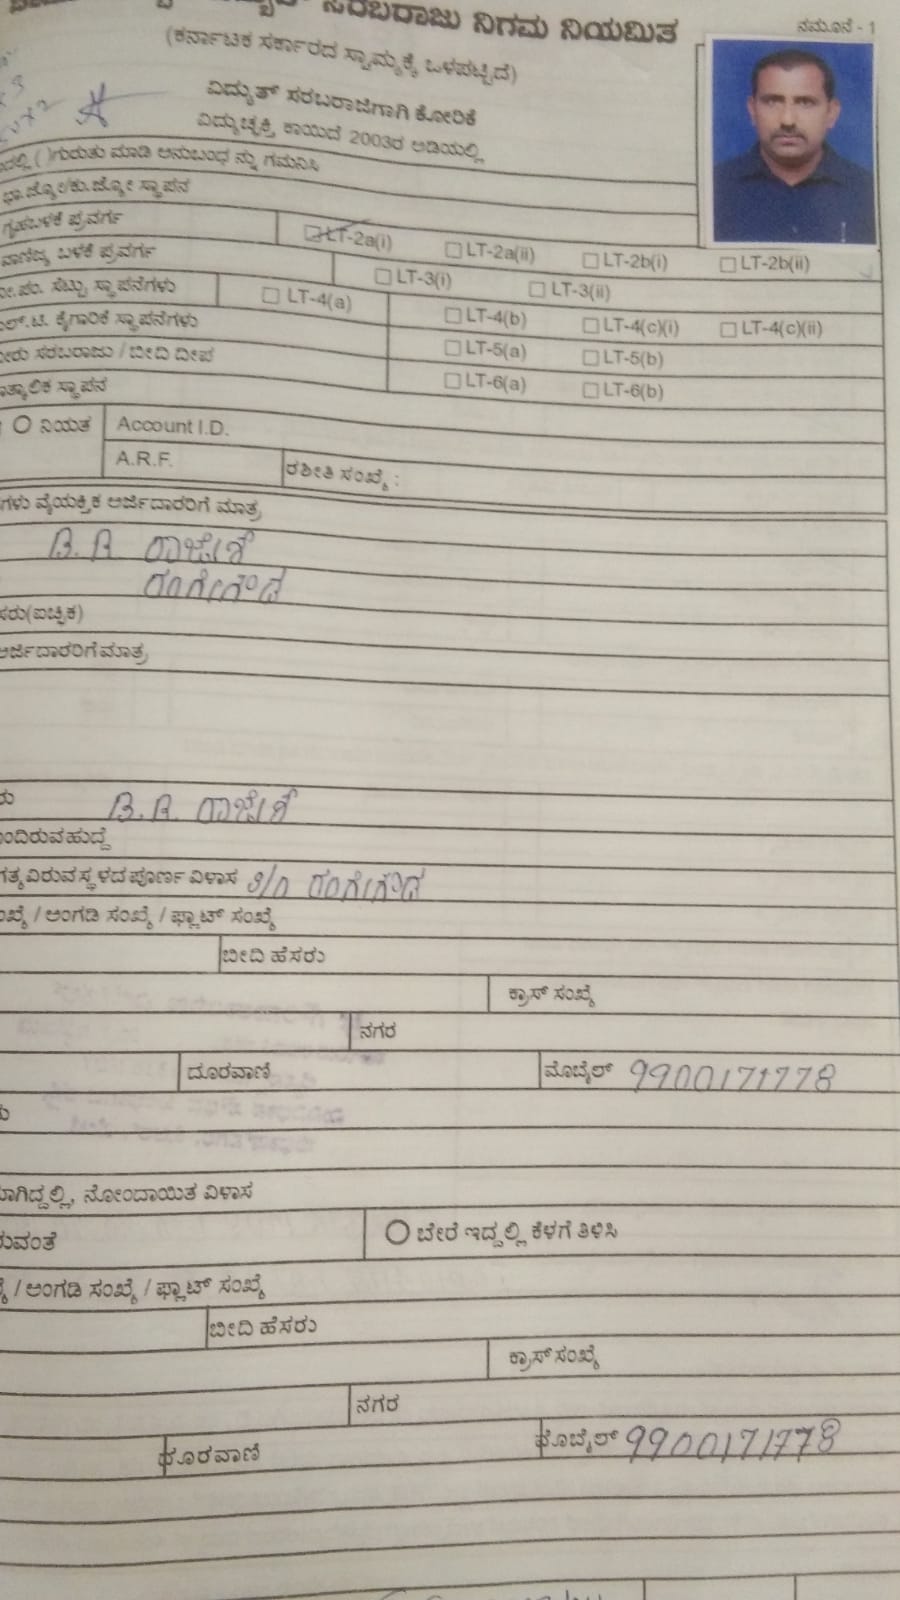 ಸರಬರಾಜು ನಿಗಮ ನಿಯಮಿತ
ನಮೂನೆ - 1
(ಕರ್ನಾಟಕ ಸರ್ಕಾರದ ಸ್ವಾಮ್ಯಕ್ಕೆ ಒಳಪಟ್ಟಿದೆ)
ವಿದ್ಯುತ್ ಸರಬರಾಜಿಗಾಗಿ ಕೋರಿಕೆ
ವಿದ್ಯುಚ್ಛಕ್ತಿ ಕಾಯಿದೆ 2003ರ ಅಡಿಯಲ್ಲಿ
ಗುರುತು ಮಾಡಿ ಅನುಬಂಧ ನ್ನು ಗಮನಿಸಿ
ಭಾ.ಜ್ಯೋ/ಕು.ಜ್ಯೋ ಸ್ಥಾಪನ
ಗೃಹಬಳಕೆ ಪ್ರವರ್ಗ LT-2a(i) LT-2a(ii) LT-2b(i) LT-2b(ii)
ವಾಣಿಜ್ಯ ಬಳಕೆ ಪ್ರವರ್ಗ LT-3(i) LT-3(ii)
ಸೆಟ್ಟು ಸ್ಥಾಪನೆಗಳು LT-4(a) LT-4(b) LT-4(c)(i) LT-4(c)(ii)
ಕೈಗಾರಿಕೆ ಸ್ಥಾಪನೆಗಳು LT-5(a) LT-5(b)
ಸರಬರಾಜು / ಬೀದಿ ದೀಪ LT-6(a) LT-6(b)
ಸ್ಥಾಪನ
ನಿಯತ Account I.D.
A.R.F. ರಶೀತಿ ಸಂಖ್ಯೆ :
ವೈಯಕ್ತಿಕ ಅರ್ಜಿದಾರರಿಗೆ ಮಾತ್ರ
B. R ರಾಜೇಶ್
ರಂಗೇಗೌಡ
(ಐಚ್ಛಿಕ)
ಅರ್ಜಿದಾರರಿಗೆ ಮಾತ್ರ
B. R. ರಾಜೇಶ್
ಪೂರ್ಣ ವಿಳಾಸ S/O ರಂಗೇಗೌಡ
/ ಅಂಗಡಿ ಸಂಖ್ಯೆ / ಫ್ಲಾಟ್ ಸಂಖ್ಯೆ
ಬೀದಿ ಹೆಸರು
ಕ್ರಾಸ್ ಸಂಖ್ಯೆ
ನಗರ
ದೂರವಾಣಿ ಮೊಬೈಲ್ 9900171778
ನೋಂದಾಯಿತ ವಿಳಾಸ
ಬೇರೆ ಇದ್ದಲ್ಲಿ ಕೆಳಗೆ ತಿಳಿಸಿ
/ ಅಂಗಡಿ ಸಂಖ್ಯೆ / ಫ್ಲಾಟ್ ಸಂಖ್ಯೆ
ಬೀದಿ ಹೆಸರು
ಕ್ರಾಸ್ ಸಂಖ್ಯೆ
ನಗರ
ದೂರವಾಣಿ ಮೊಬೈಲ್ 9900171778